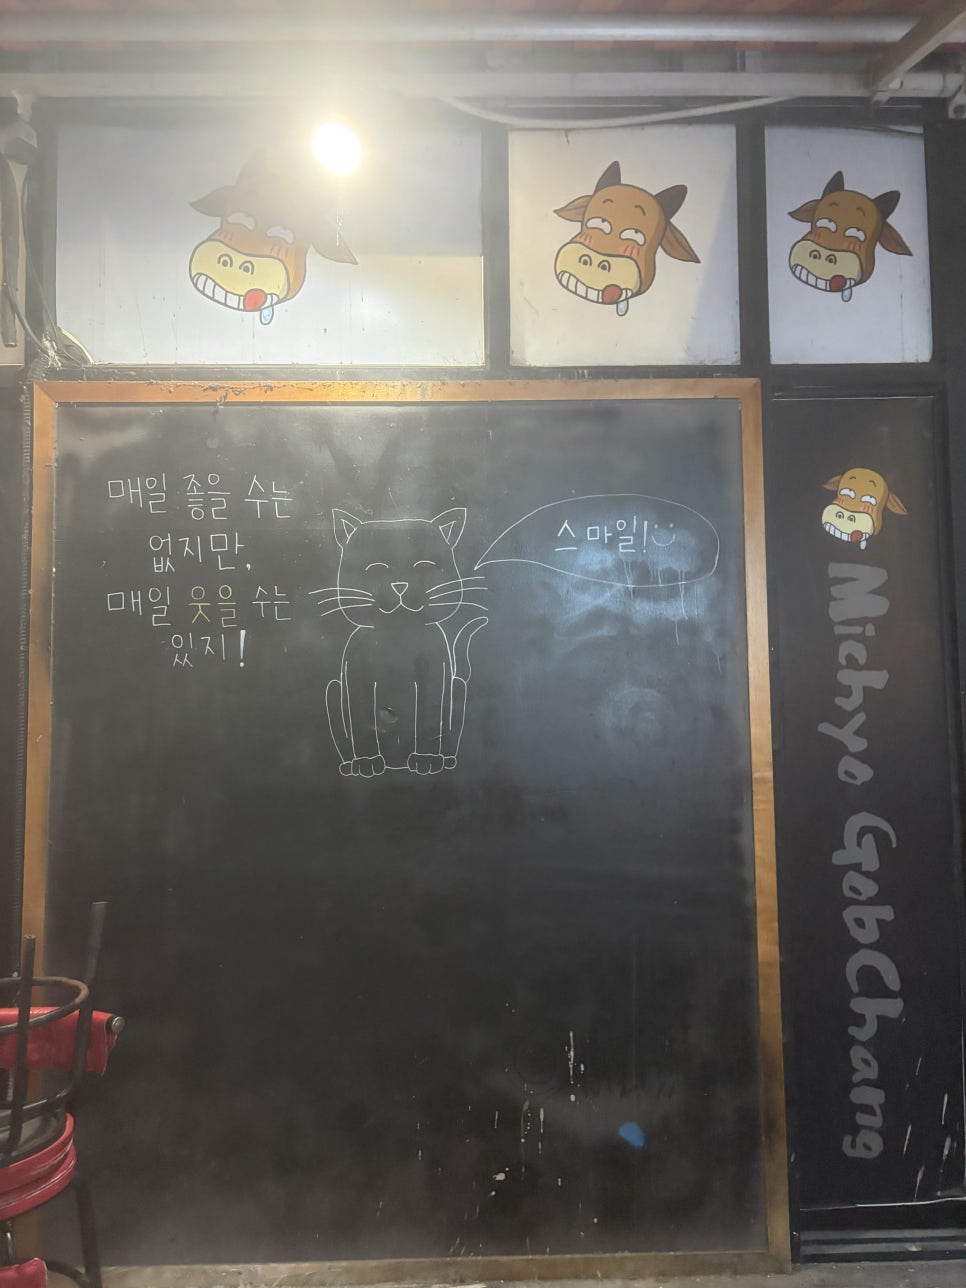 매일 좋을 수는
없지만,
매일 웃을 수는
있지!
스마일!
Michyo GobChang